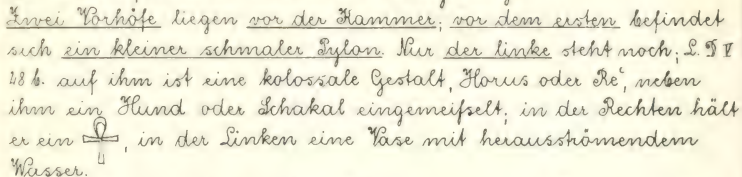 Zwei Vorhöfe liegen vor der Kammer; vor dem ersten befindet
sich ein kleiner schmaler Pylon. Nur der linke steht noch; L. D V
48 b. auf ihm ist eine kolossale Gestalt, Horus oder Re‘, neben
ihm ein Hund oder Schakal eingemeißelt; in der Rechten hält
er ein ☥, in der Linken eine Vase mit herausströmendem
Wasser.